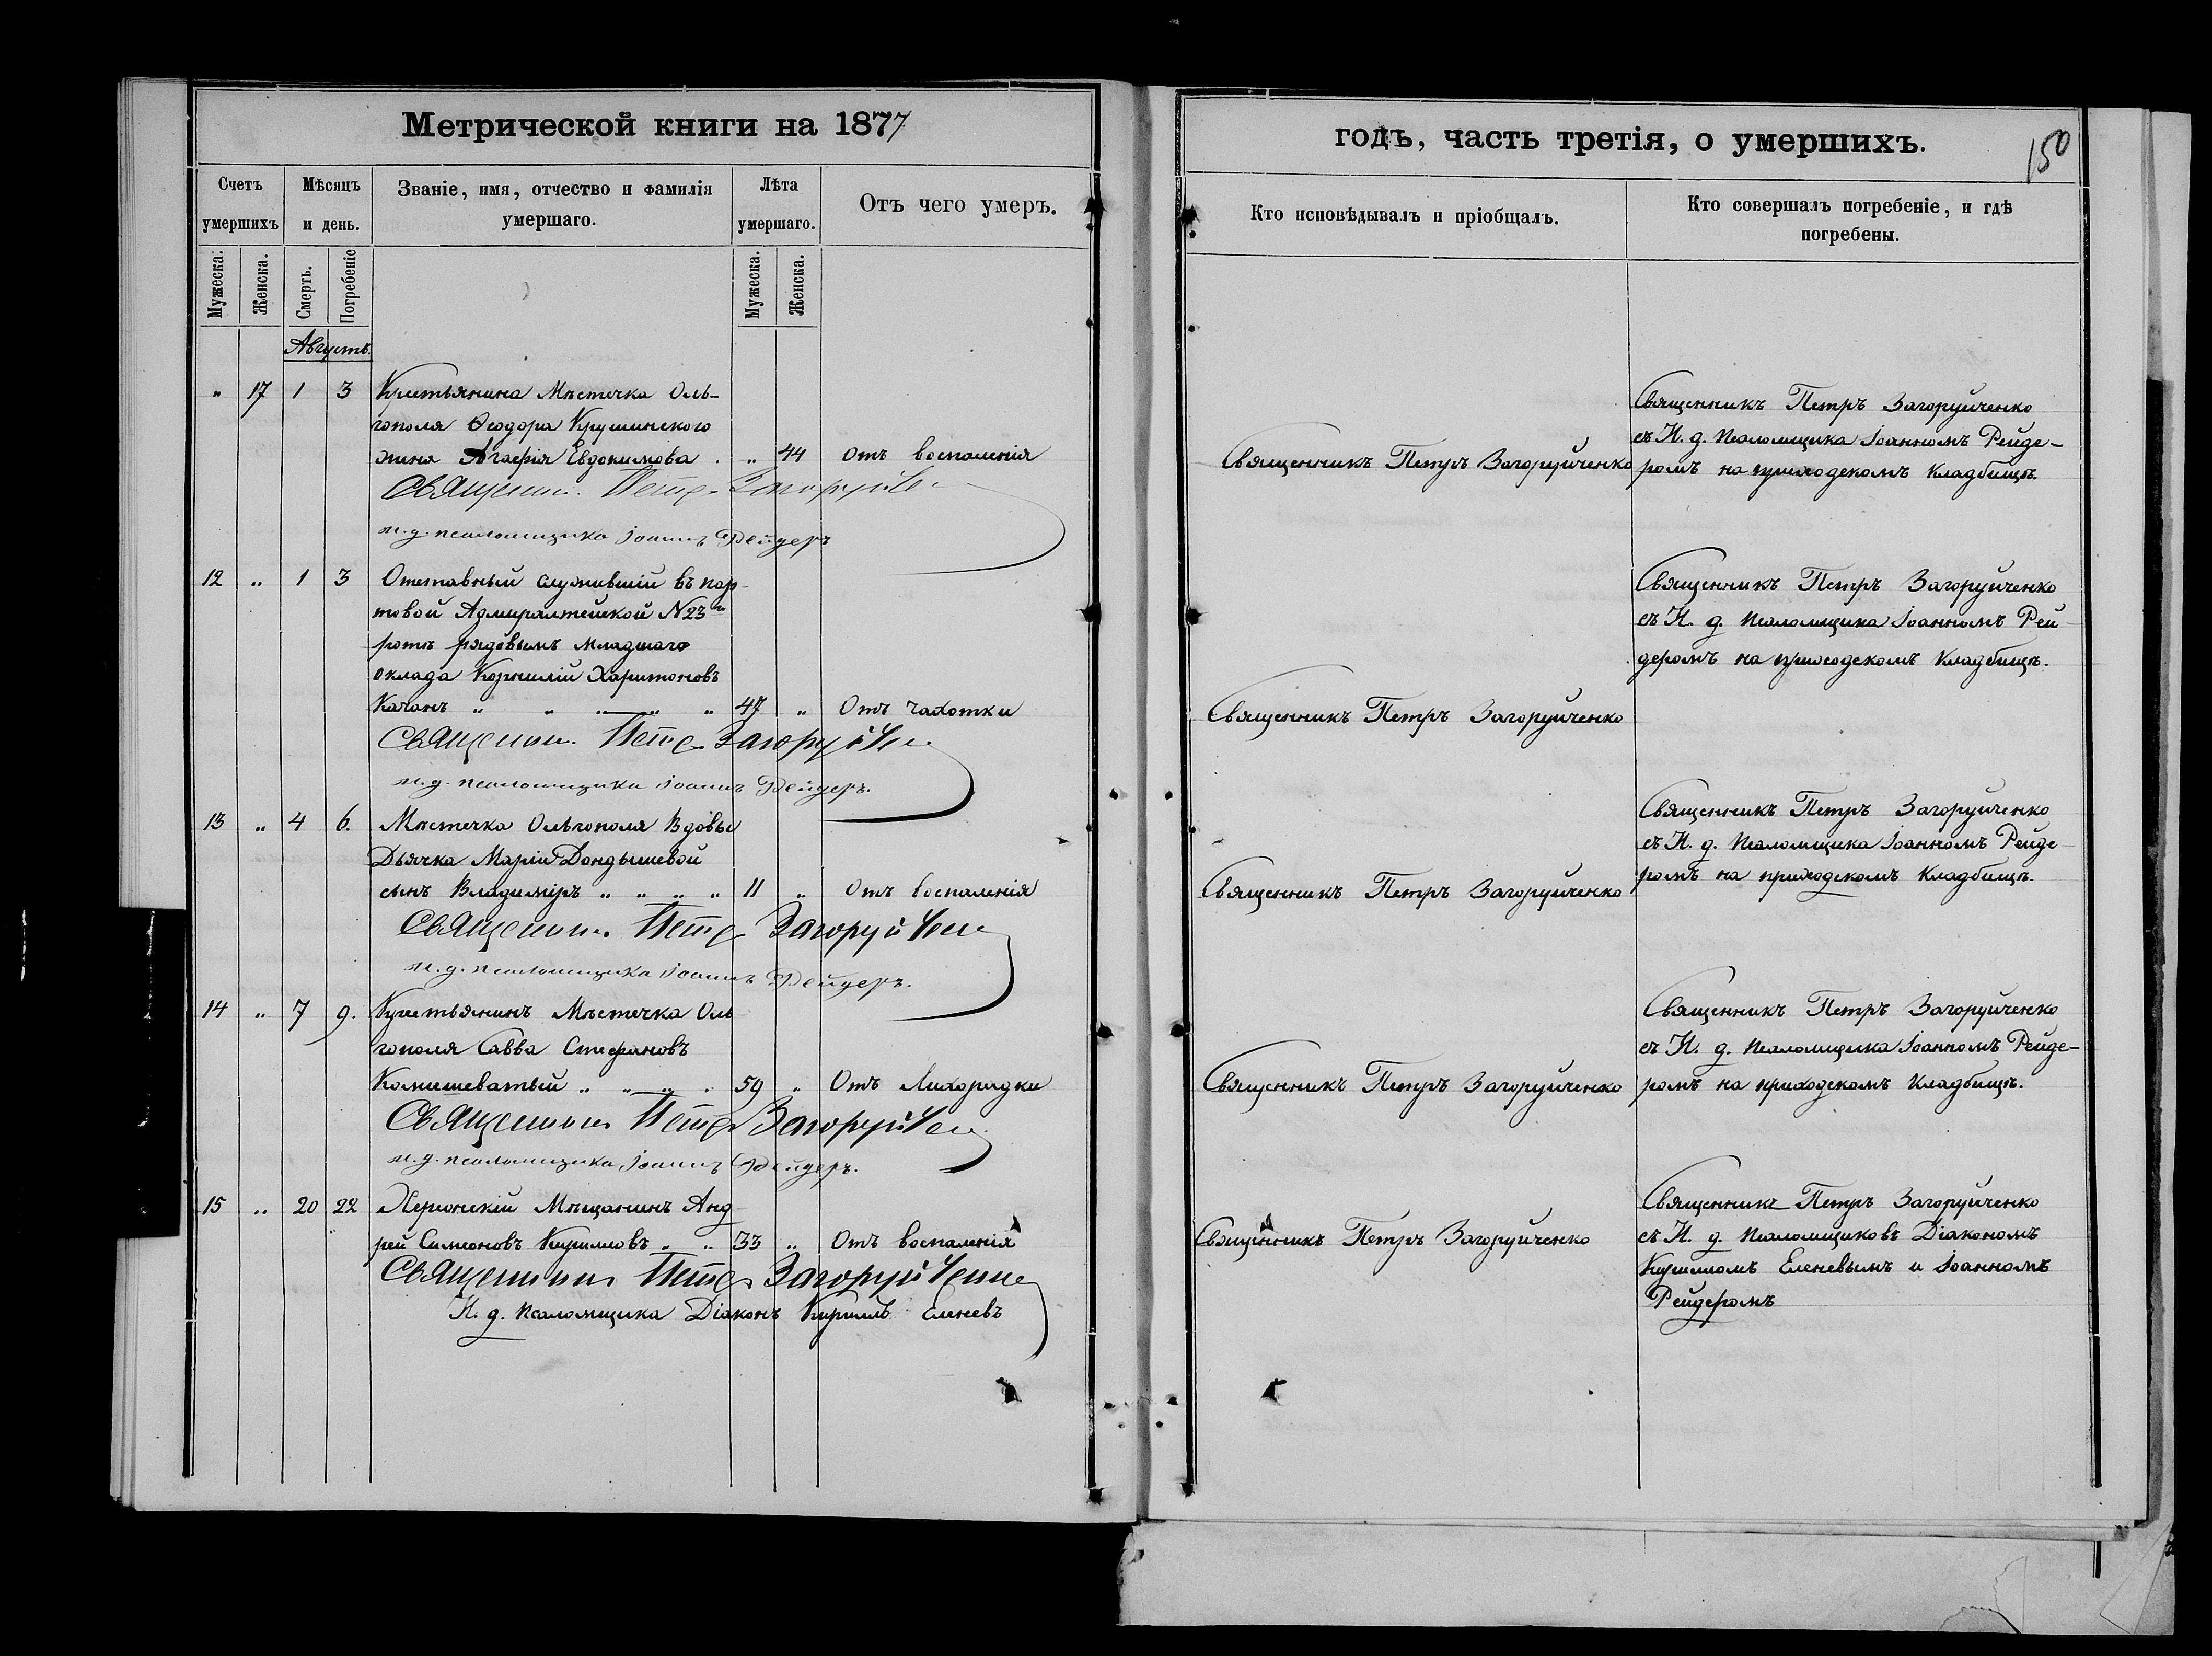 Метрической книги на 1877
Счетъ умершихъ
Мѣсяцъ и день.
Званіе, имя, отчество и фамилія умершаго.
Лѣта умершаго.
Отъ чего умеръ.
Мужеска.
Женска.
Смерть.
Погребеніе
Мужеска.
Женска.
Августъ.
" 17 1 3 Крестьянина Мѣстечка Оль-
гополя Ѳеодора Крушинского
жена Агафія Евдокимова . " 44 Отъ воспаленія
Священникъ Петръ Загоруйченко
и. д. псаломщика Іоаннъ Рейдеръ
12 " 1 3 Отставный служившій въ пор-
товой Адмиралтейской N 23й
ротѣ рядовымъ младшаго
оклада Корнилій Харитоновъ
Качанъ " " " " " 47 " Отъ чахотки
Священникъ Петръ Загоруйченко
и. д. псаломщика Іоаннъ Рейдеръ.
13 " 4 6. Мѣстечка Ольгополя Вдовы
Дьячка Маріи Дондышевой
сынъ Владиміръ " " " " 11 " Отъ воспаленія
Священникъ Петръ Загоруйченко
и. д. псаломщика Іоаннъ Рейдеръ.
14 " 7 9. Крестьянинъ Мѣстечка Оль
гополя Савва Стефановъ
Комишеватый " " " . 59 " Отъ Лихорадки
Священникъ Петръ Загоруйченко
и. д. псаломщика Іоаннъ Рейдеръ.
15 " 20 22 Херсонскій Мѣщанинъ Анд
рей Симеоновъ Кирилловъ " " 33 " Отъ воспаленія
Священникъ Петръ Загоруйченко
И. д. псаломщика Діаконъ Кириллъ Еленевъ
годъ, часть третія, о умершихъ.
150
Кто исповѣдывалъ и пріобщалъ.
Кто совершалъ погребеніе, и гдѣ
погребены.
Священникъ Петръ Загоруйченко
Священникъ Петръ Загоруйченко
съ И. д. псаломщика Іоанномъ Рейде-
ромъ на приходскомъ кладбищѣ.
Священникъ Петръ Загоруйченко
Священникъ Петръ Загоруйченко
съ И. д. псаломщика Іоанномъ Рей
деромъ на приходскомъ кладбищѣ.
Священникъ Петръ Загоруйченко
Священникъ Петръ Загоруйченко
съ И. д. псаломщика Іоанномъ Рейде-
ромъ на приходскомъ кладбищѣ.
Священникъ Петръ Загоруйченко
Священникъ Петръ Загоруйченко
съ И. д. псаломщика Іоанномъ Рейде-
ромъ на приходскомъ кладбищѣ.
Священникъ Петръ Загоруйченко
Священникъ Петръ Загоруйченко
съ И. д. псаломщиковъ Діакономъ
Кирилломъ Еленевымъ и Іоанномъ
Рейдеромъ